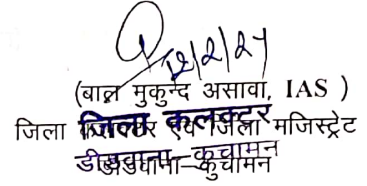 12/2/24
(बाल मुकुन्द असावा, IAS )
जिला कलक्टर एवं जिला मजिस्ट्रेट
जिला कलक्टर
डीडवाना-कुचामन
डीडवाना-कुचामन